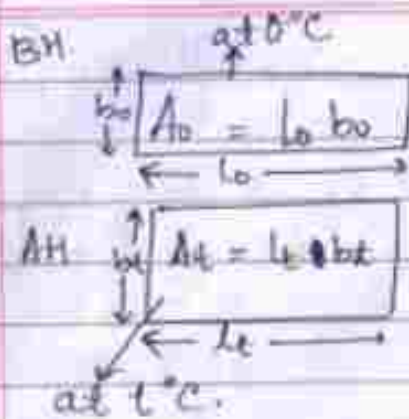 BH. at 0°C
b₀ A₀ = l₀ b₀
l₀
AH bt At = lt bt
lt
at t°C.